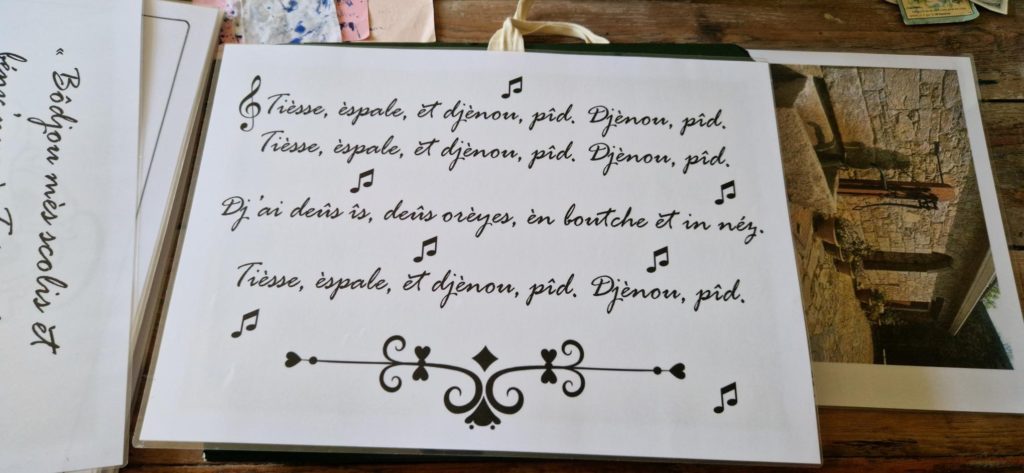 Tièsse, èspale, èt djènou, pîd. Djènou, pîd.
Tièsse, èspale, èt djènou, pîd. Djènou, pîd.
Dj'ai deûs îs, deûs orèyes, èn boutche èt in néz.
Tièsse, èspale, èt djènou, pîd. Djènou, pîd.
« Bôdjou mès scolîs èt